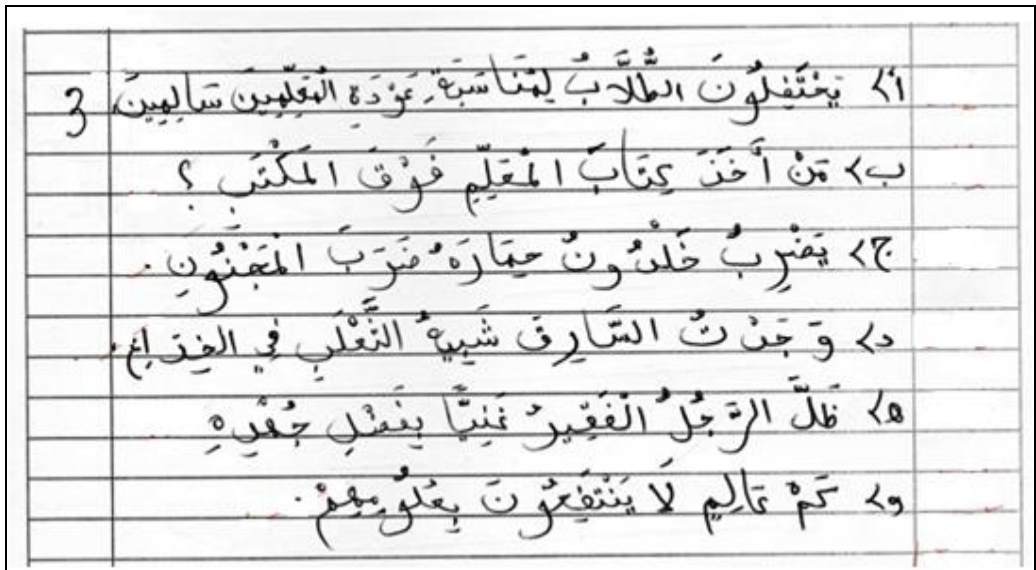 أ> يَحْتَفِلُونَ الطُّلَّابُ لِمُنَاسَبَةِ عَوْدَةِ المُعَلِّمِينَ سَالِمِينَ 3
ب> مَنْ أَخَذَ كِتَابَ المُعَلِّمِ فَوْقَ المَكْتَبِ ؟
ج> يَضْرِبُ خَلْدُونُ حِمَارَهُ ضَرَبَ المَجْنُونِ .
د> وَجَدْتُ السَّارِقَ شَبِيهُ الثَّعْلَبِ فِي الخِدَاعِ.
ه> ظَلَّ الرَّجُلُ الْفَقِيرُ غَنِيًّا بِفَضْلِ جُهْدِهِ
و> كَمْ عَالِمٍ لَا يَنْتَفِعُونَ بِعُلُومِهِمْ .